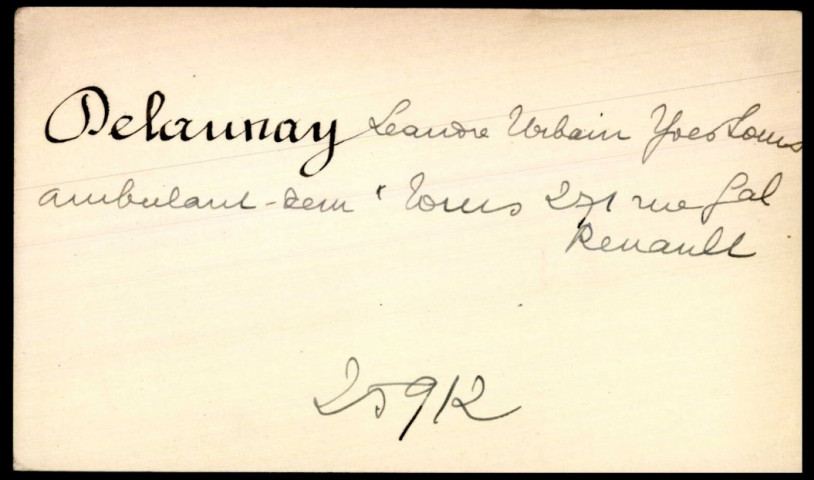 Delaunay Leandre Urbain Yves Louis
ambulant - dem t Tours 271 rue Gal
Renault
25912